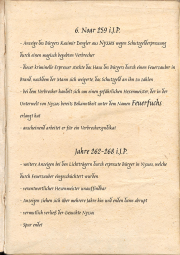 6. Noar 259 i.J.P.
- Anzeige des Bürgers Kasimir Bengler aus Nyssos wegen Schutzgelderpressung
durch einen magisch begabten Verbrecher
- dieser kriminelle Erpresser steckte das Haus des Bürgers durch einen Feuerzauber in
Brand, nachdem der Mann sich weigerte, das Schutzgeld an ihn zu zahlen
- bei dem Verbrecher handelt sich um einen gefährlichen Hexenmeister, der in der
Unterwelt von Nyssos bereits Bekanntheit unter dem Namen Feuerfuchs
erlangt hat
- anscheinend arbeitet er für ein Verbrechersyndikat
Jahre 262-268 i.J.P.
- weitere Anzeigen bei den Lichtträgern durch erpresste Bürger in Nyssos, welche
durch Feuerzauber eingeschüchtert wurden
- verantwortlicher Hexenmeister unauffindbar
- Anzeigen ziehen sich über mehrere Jahre hin und enden dann abrupt
- vermutlich verließ der Gesuchte Nyssos
- Spur endet